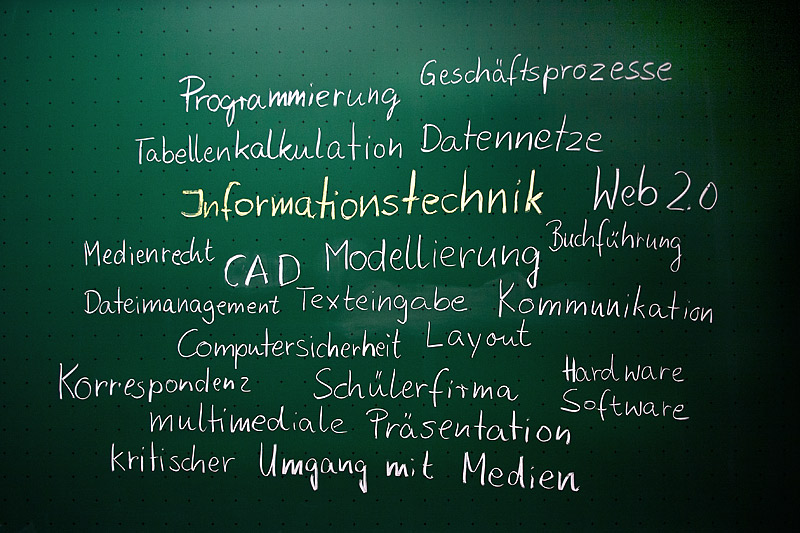 Geschäftsprozesse
Programmierung
Tabellenkalkulation Datennetze
Informationstechnik Web 2.0
Medienrecht CAD Modellierung Buchführung
Dateimanagement Texteingabe Kommunikation
Computersicherheit Layout
Korrespondenz Schülerfirma Hardware
Software
multimediale Präsentation
kritischer Umgang mit Medien